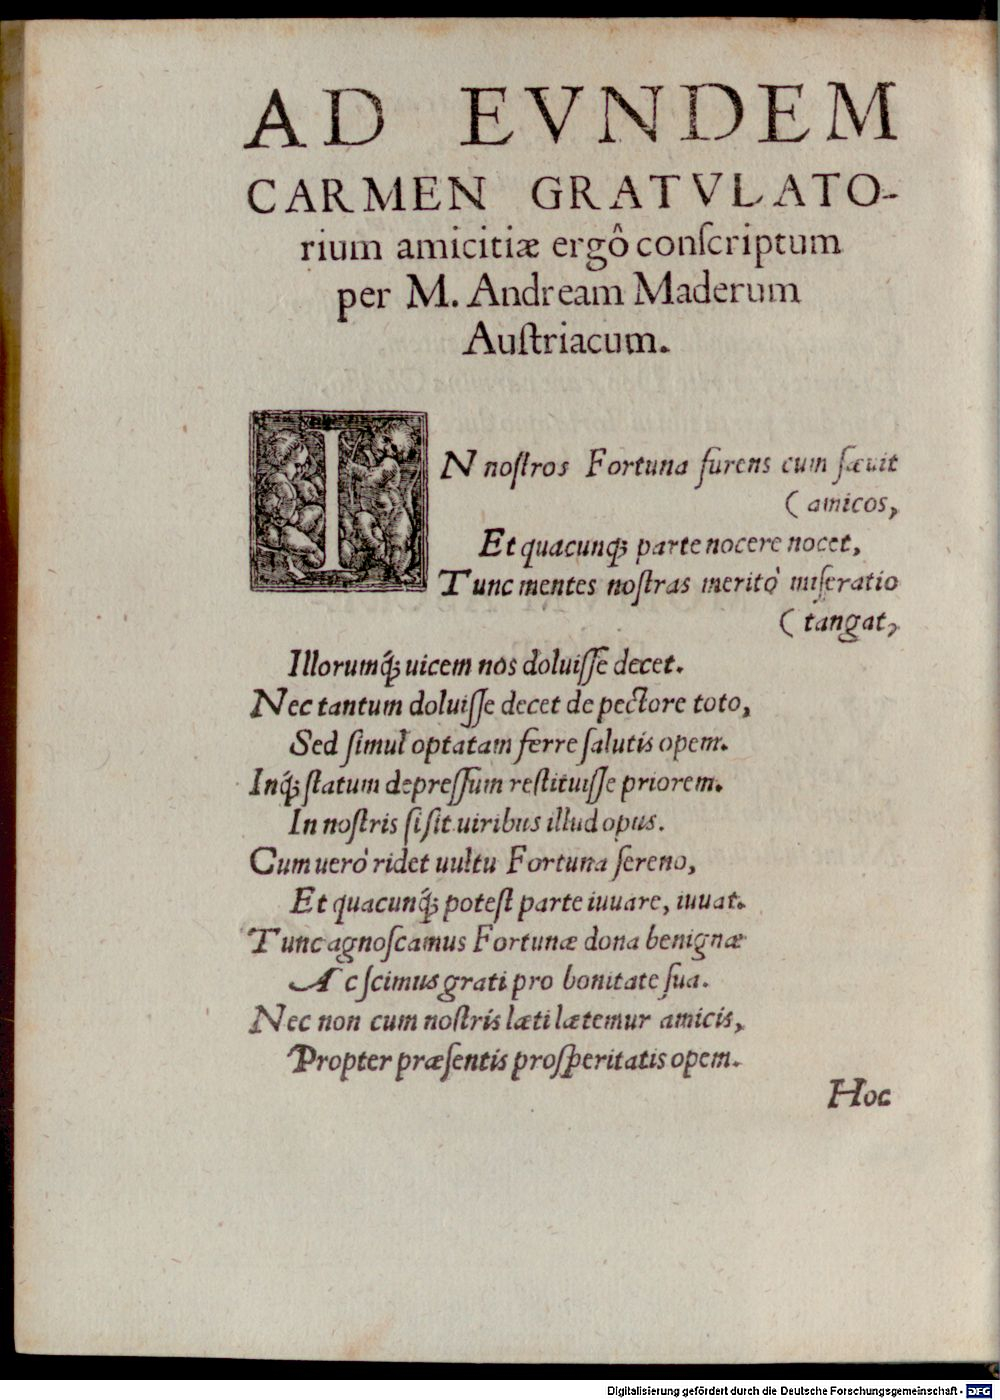 AD EVNDEM
CARMEN GRATVLATO-
rium amicitiæ ergô conſcriptum
per M. Andream Maderum
Auſtriacum.
IN noſtros Fortuna furens cum ſæuit
(amicos,
Et quacunq; parte nocere nocet,
Tunc mentes noſtras meritò miſeratio
(tangat,
Illorumq́; uicem nos doluiſſe decet.
Nec tantum doluiſſe decet de pectore toto,
Sed ſimul optatam ferre ſalutis opem.
Inq́; ſtatum depreſſum reſtituiſſe priorem.
In noſtris ſi ſit uiribus illud opus.
Cum uerò ridet uultu Fortuna ſereno,
Et quacunq́; poteſt parte iuuare, iuuat.
Tunc agnoſcamus Fortunæ dona benignæ
Ac ſcimus grati pro bonitate ſua.
Nec non cum noſtris læti lætemur amicis,
Propter præſentis proſperitatis opem.
Hoc
Digitalisierung gefördert durch die Deutsche Forschungsgemeinschaft - DFG